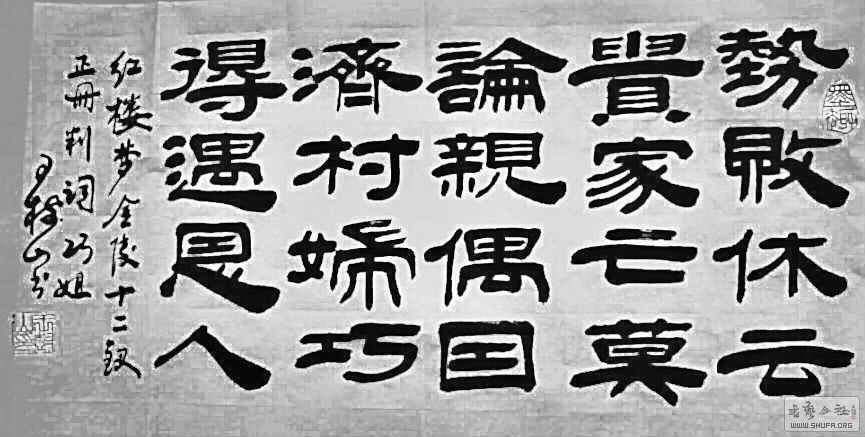 勢敗休云
貴家亡莫
論親偶因
濟村婦巧
得遇恩人
红楼梦金陵十二钗
正冊判词巧姐
山书
書藝公社
WWW.SHUFA.ORG